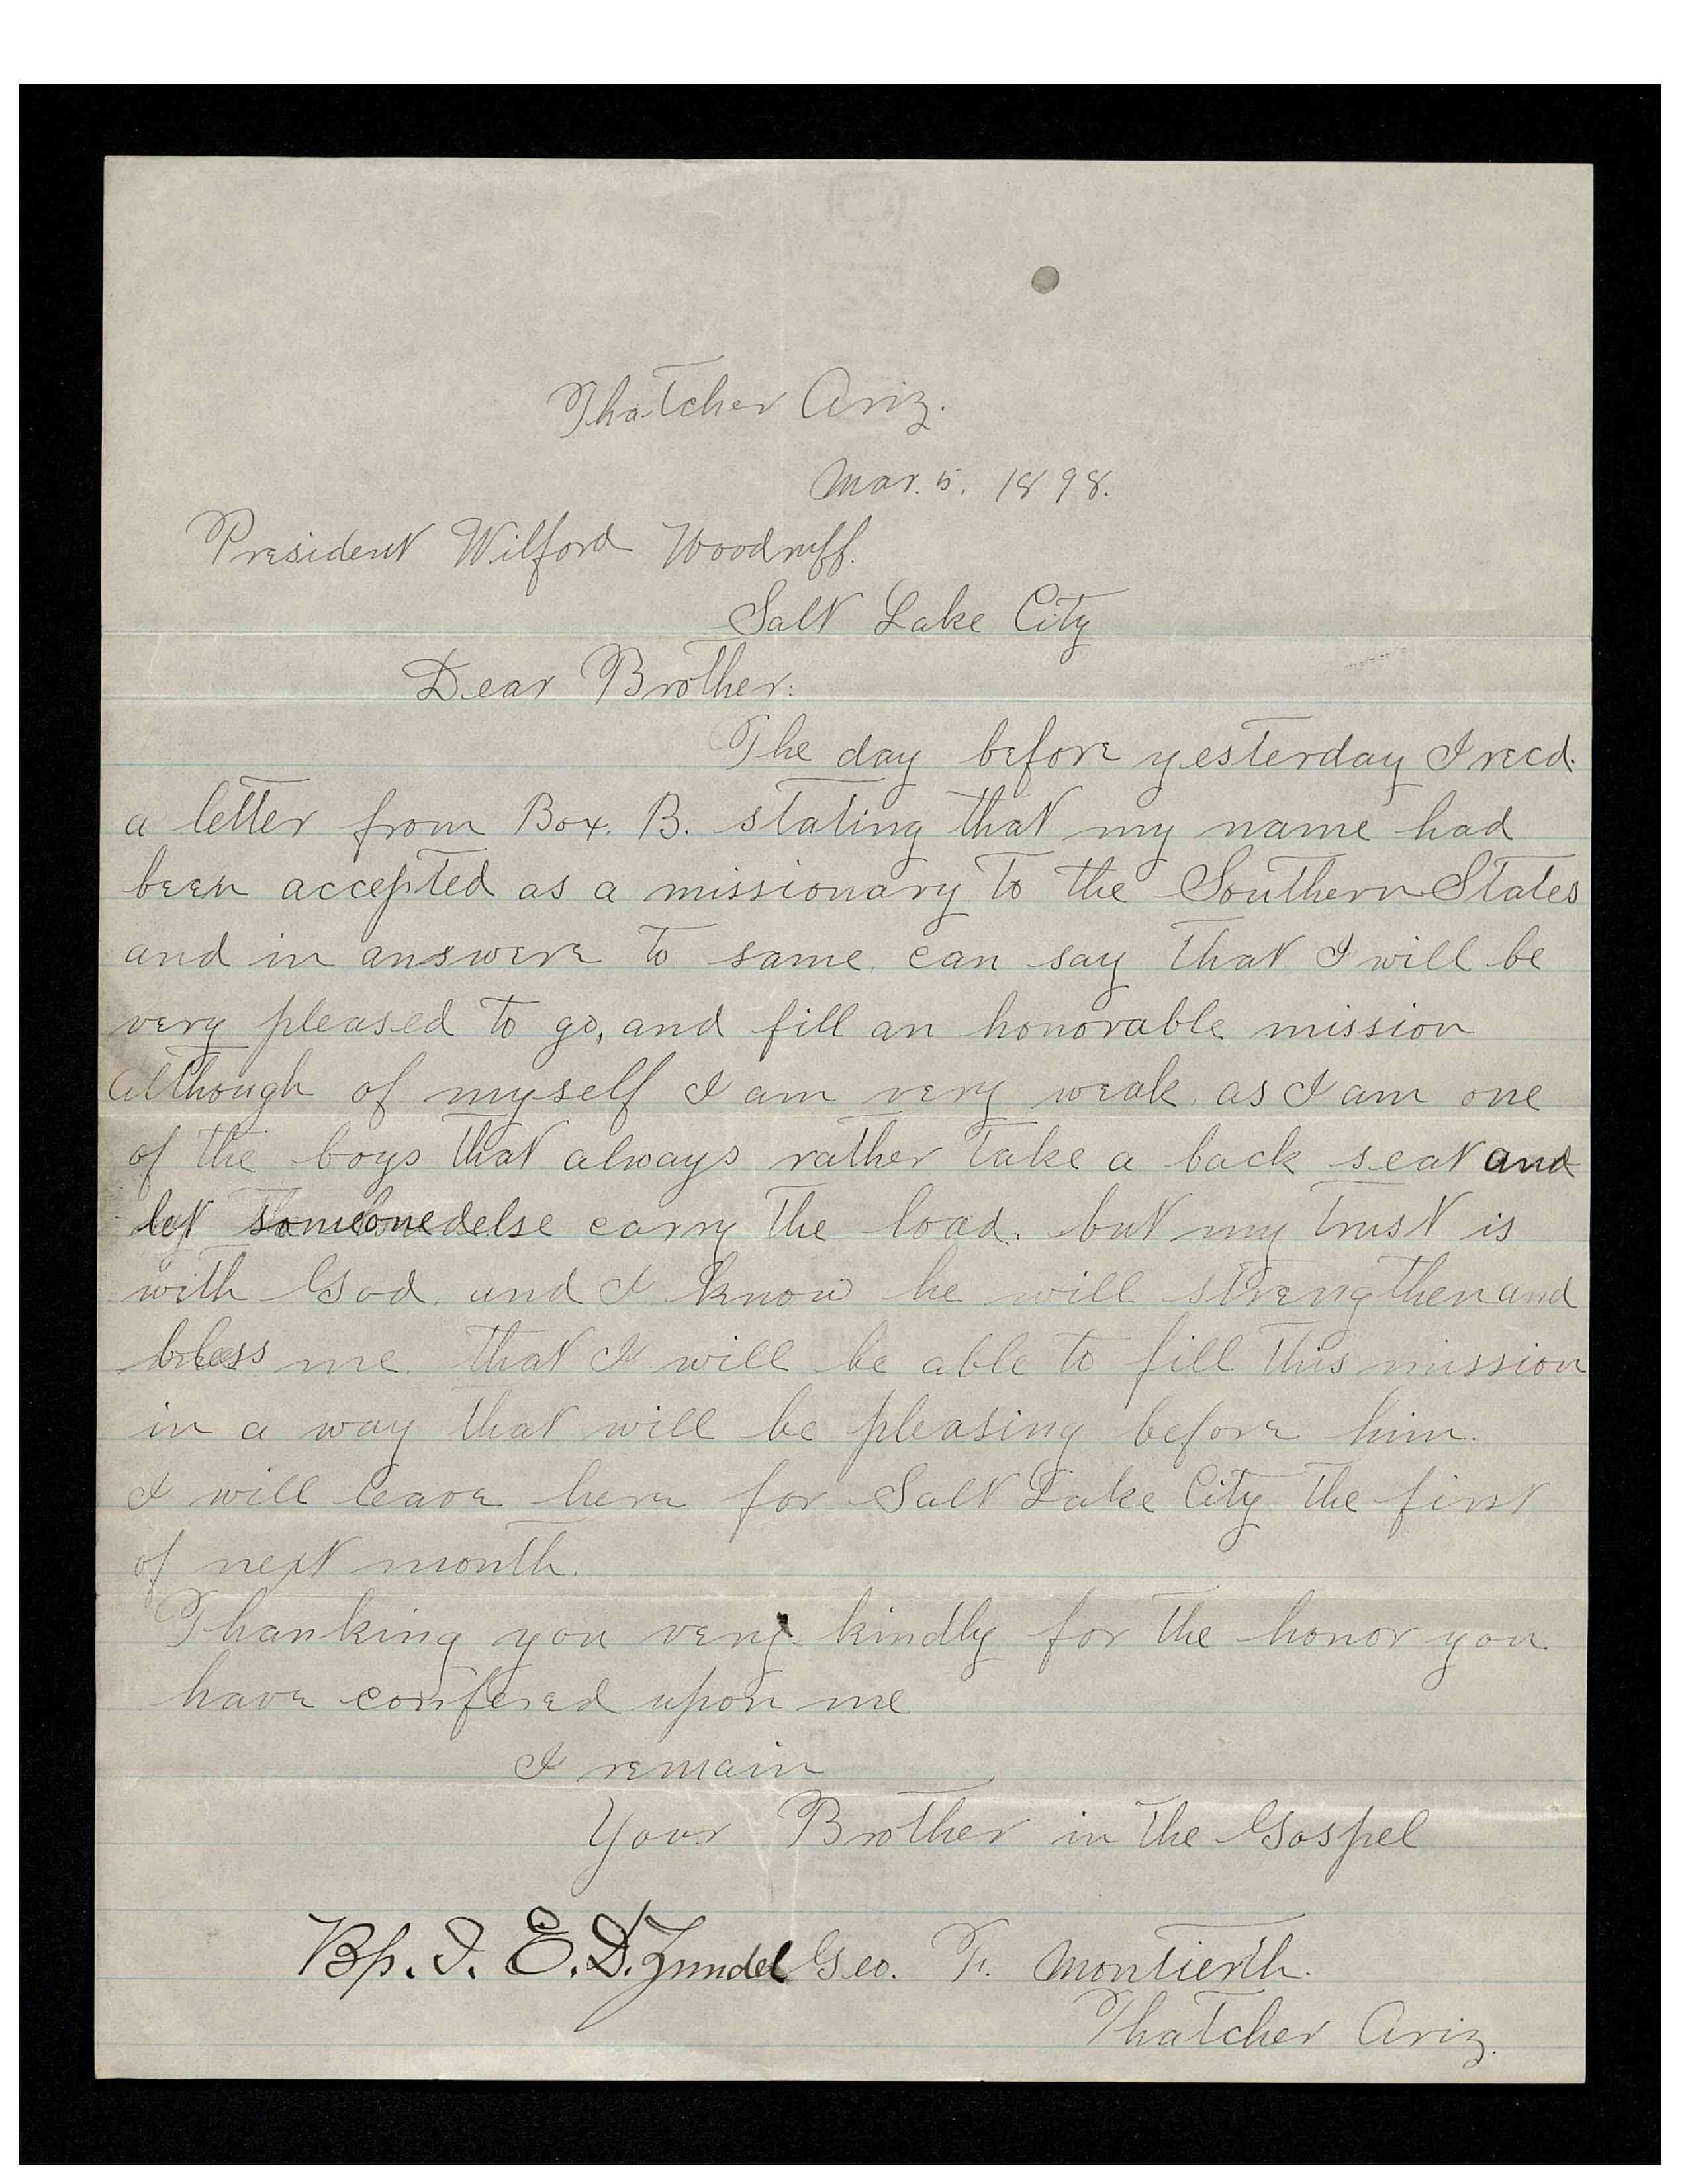 Thatcher Ariz.
Mar. 5. 1898.
President Wilford Woodruff.
Salt Lake City
Dear Brother:
The day before yesterday I recd.
a letter from Box. B. stating that my name had
been accepted as a missionary to the Southern States
and in answere to same can say that I will be
very pleased to go, and fill an honorable mission
although of myself I am very weak as I am one
of the boys that always rather take a back seat and
let someone else carry the load. but my trust is
with God. and I know he will strengthen and
bless me. that I will be able to fill this mission
in a way that will be pleasing before him.
I will leave here for Salt Lake City the first
of next month.
Thanking you very kindly for the honor you
have confered upon me
I remain
Your Brother in the Gospel
Bp. I. E. D. Zundel Geo. F. Montierth.
Thatcher Ariz.